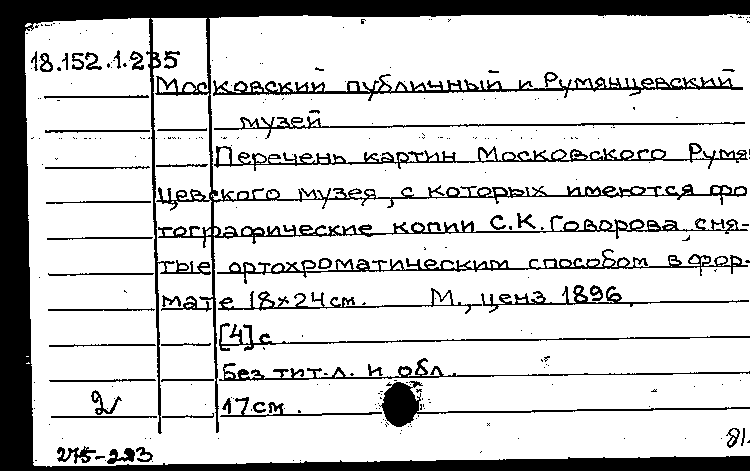 18.152.1.235
Московский публичный и Румянцевский
музей
Перечень картин Московского Румян
цевского музея, с которых имеются фо
тографические копии С.К. Говорова, сня-
тые ортохроматическим способом в фор-
мате 18×24 см. М., ценз 1896.
[4] с
Без тит. л. и обл.
17 см.
275-223